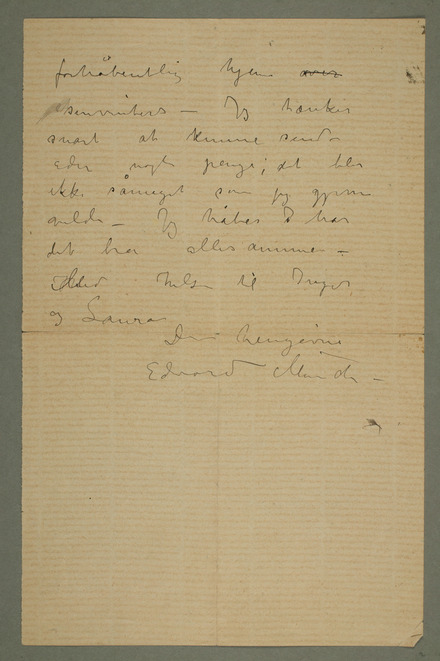 forhåbentlig hjem over
senvinters – Jeg tænker
snart at kunne sende
eder nogle penge; det blir
ikke såmeget som jeg gjerne
vilde – Jeg håber I har
det bra allesammen –
Med hilsen til Inger
og Laura
Din hengivne
Edvard Munch –